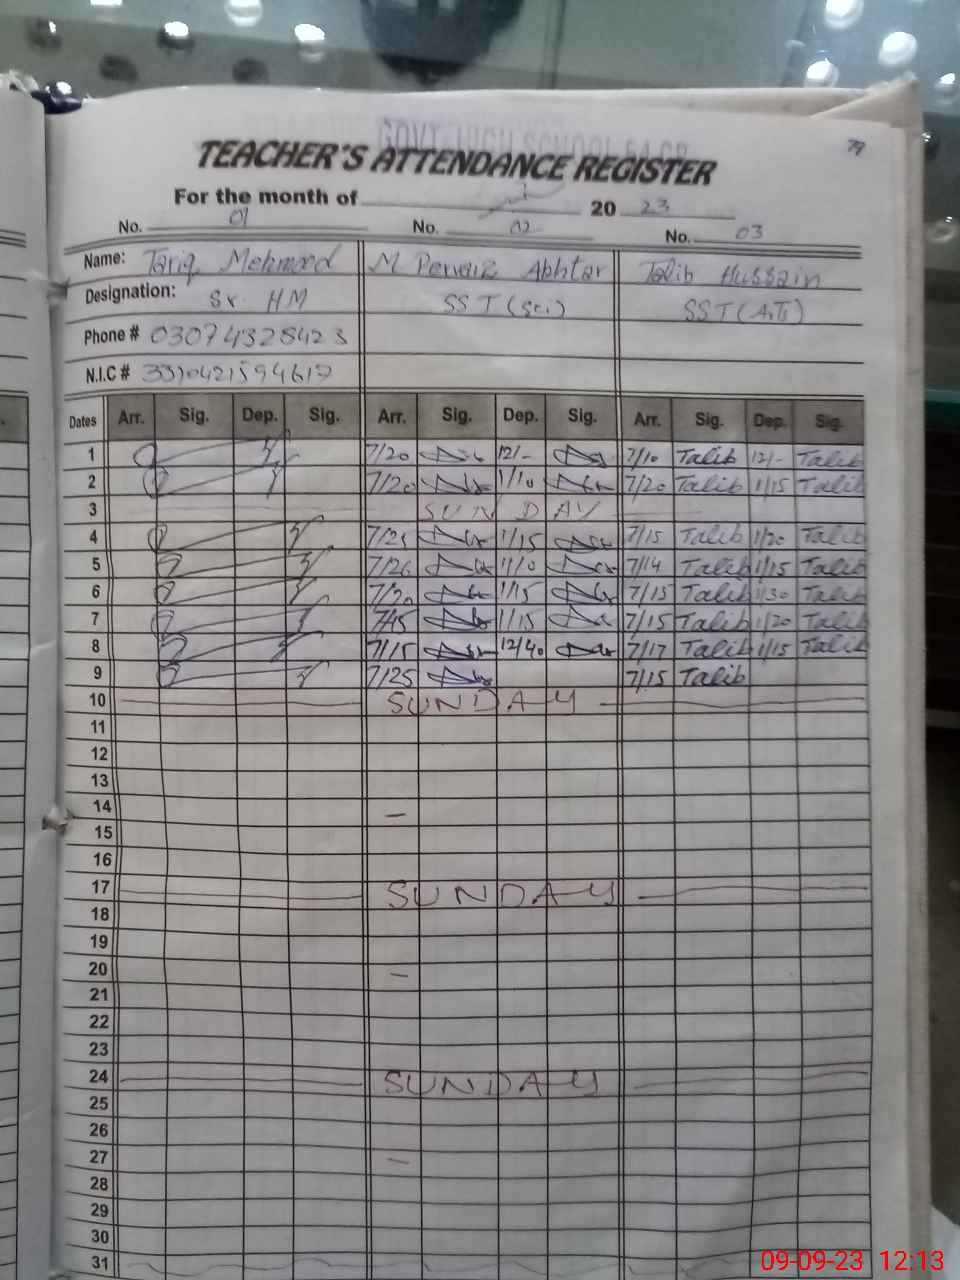 GOVT. HIGH SCHOOL 54 GB
79
TEACHER'S ATTENDANCE REGISTER
For the month of 20 23
No. 01 No. 02 No. 03
Name: Tariq Mehmood M Pervaiz Akhtar Talib Hussain
Designation: Sr HM SST (Sci) SST (Arts)
Phone # 03074328423
N.I.C #
Dates Arr. Sig. Dep. Sig. Arr. Sig. Dep. Sig. Arr. Sig. Dep. Sig.
1 7/20 12/- 7/10 Talib 12/- Talib
2 7/20 1/10 7/20 Talib 1/15 Talib
3 SUNDAY
4 7/25 1/15 7/15 Talib 1/20 Talib
5 7/20 1/10 7/14 Talib 1/15 Talib
6 7/20 1/15 7/15 Talib 1/30 Talib
7 7/15 1/15 7/15 Talib 1/20 Talib
8 7/15 12/40 7/17 Talib 1/15 Talib
9 7/25 7/15 Talib
10 SUNDAY
11
12
13
14 –
15
16
17 SUNDAY
18
19
20 –
21
22
23
24 SUNDAY
25
26
27 –
28
29
30
31
09-09-23 12:13